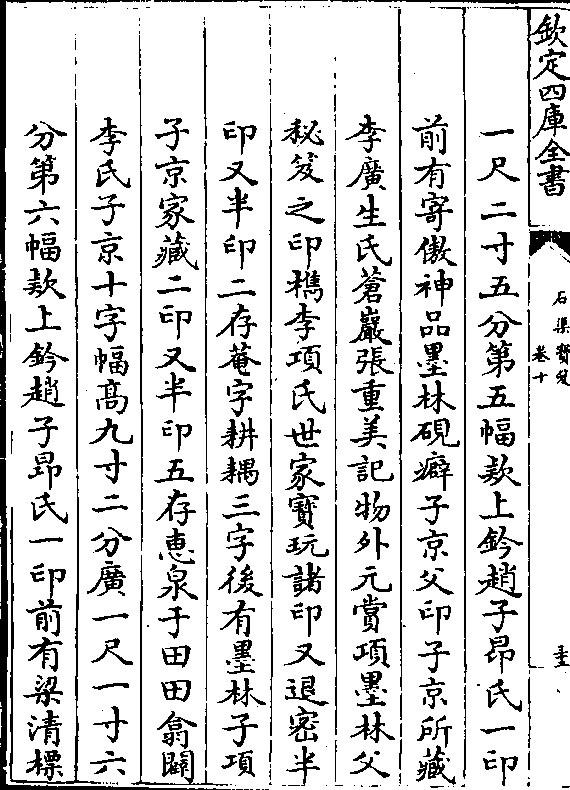 欽定四庫全書
石渠寳笈
卷十
一尺二寸五分第五幅款上鈐趙子昂氏一印
前有寄傲神品墨林硯癖子京父印子京所藏
李廣生氏蒼巖張重美記物外元賞項墨林父
秘笈之印檇李項氏世家寳玩諸印又退密半
印又半印二存菴字耕耦三字後有墨林子項
子京家藏二印又半印五存恵泉于田田翕闢
李氏子京十字幅髙九寸二分廣一尺一寸六
分第六幅款上鈐趙子昂氏一印前有梁清標